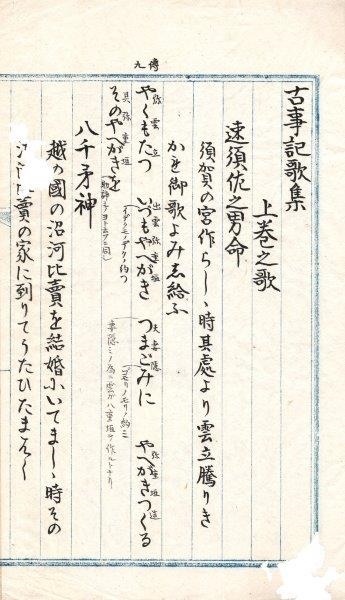 傳九
古事記歌集
上巻之歌
速須佐之男命
須賀の宮作らしゝ時其處より雲立騰りき
かれ御歌よみし給ふ
やくもたつ いづもやへがき つまごみに やへがきつくる
弥雲立 出雲弥重垣 夫妻隠 弥重垣造
そのやへがきを
其弥重垣
八千矛神
越の國の沼河比賣を結婚にいてましゝ時その
比賣の家に到りてうたひたまはく